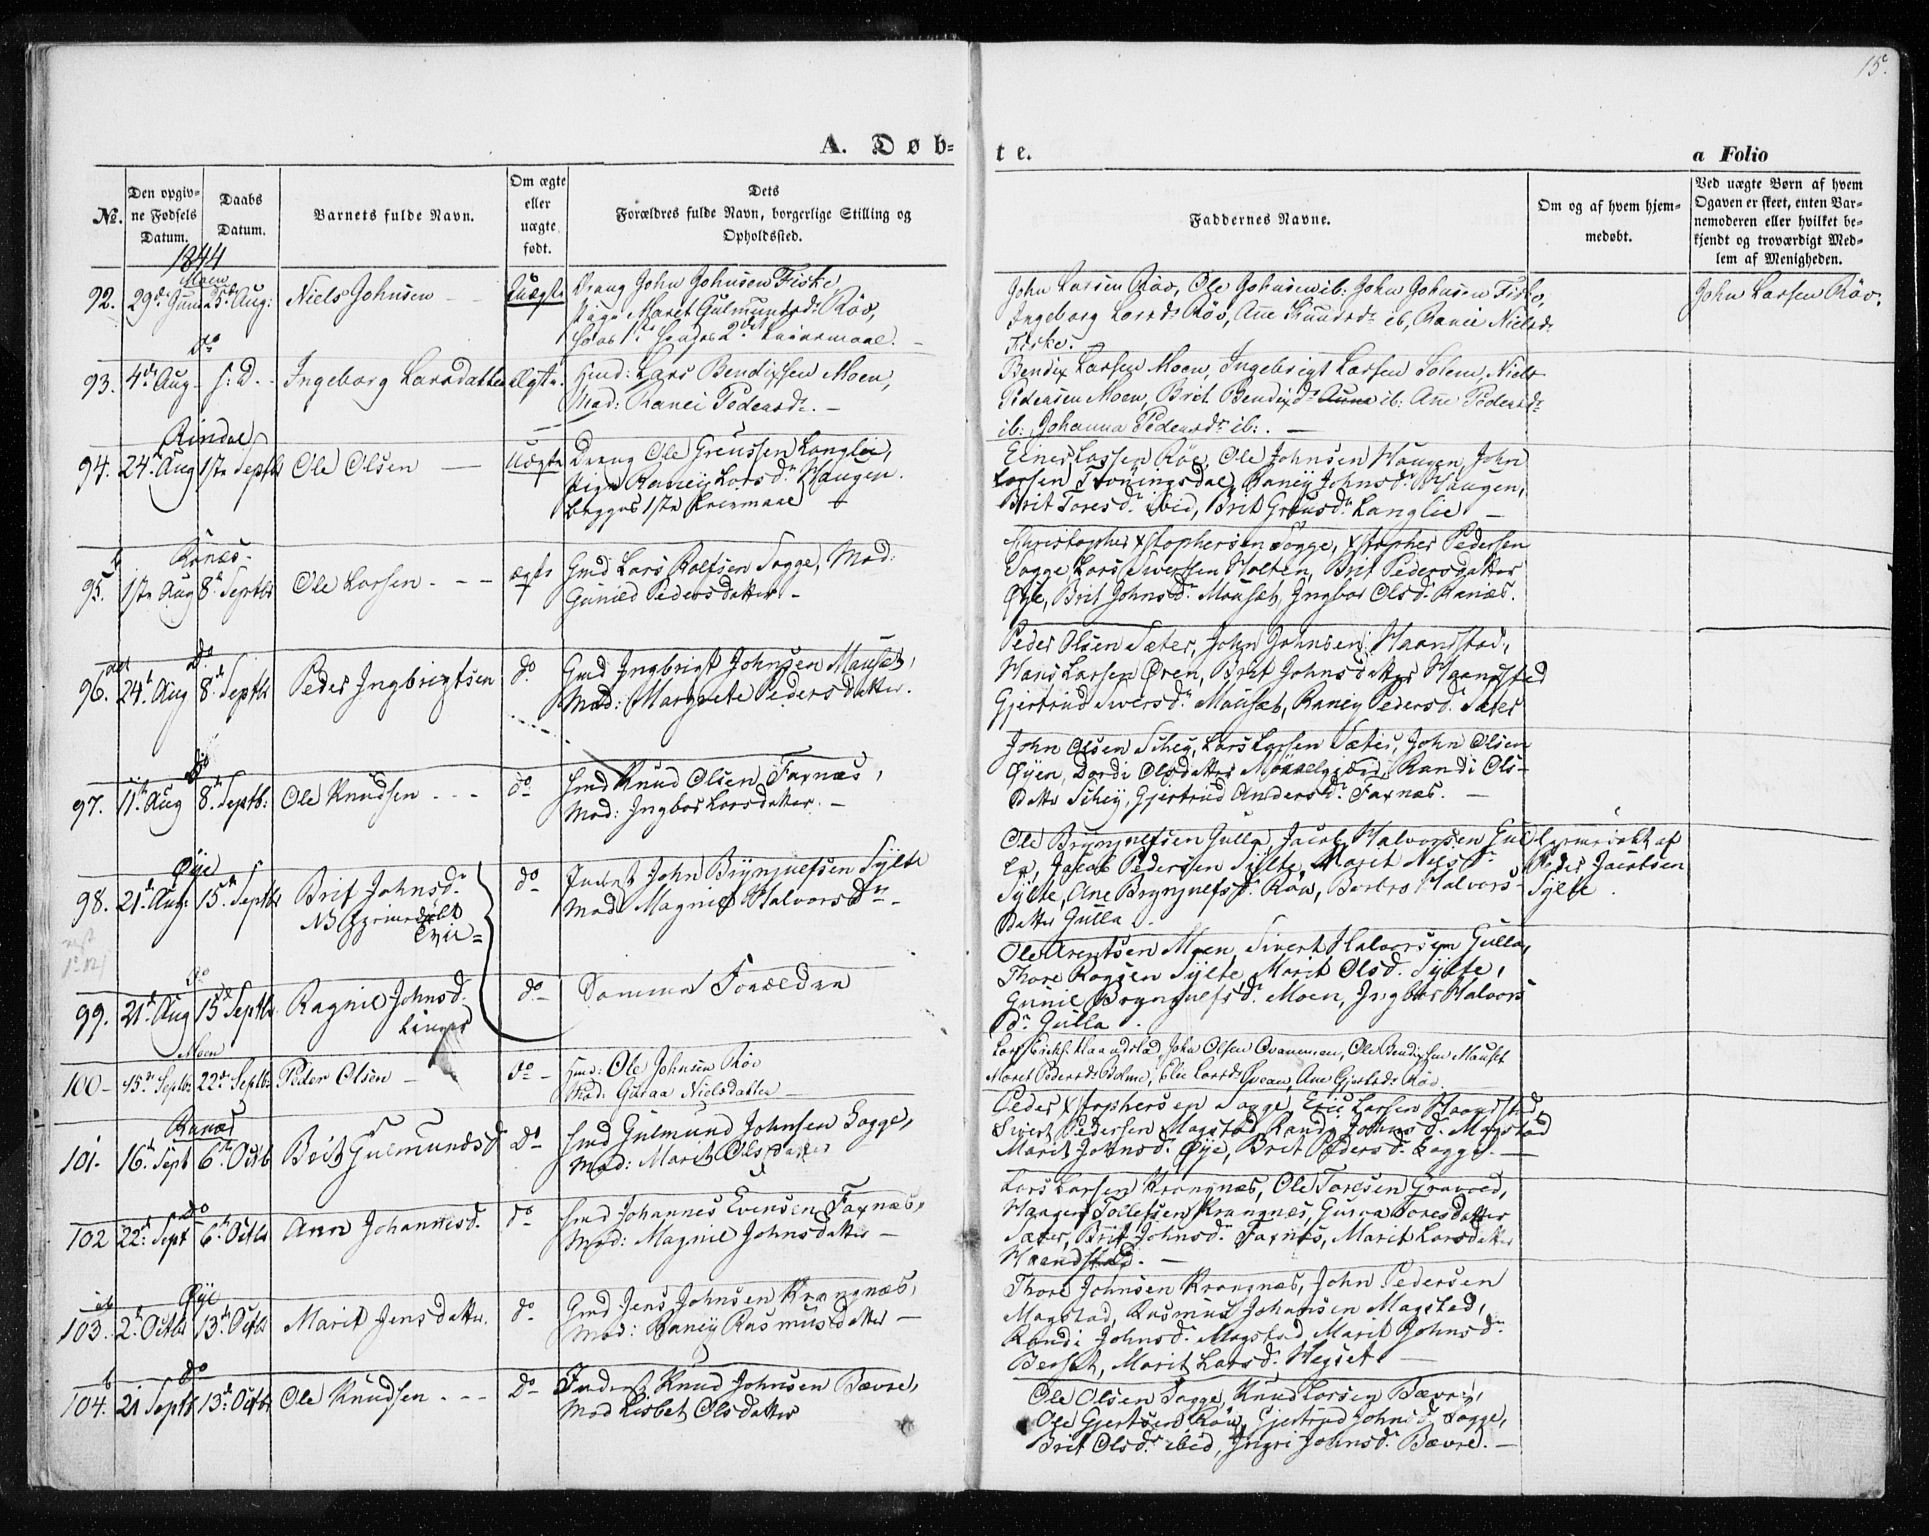 15.
A. Døb-
te.
a Folio
No.
Den opgiv-
ne Fødsels
Datum.
Daabs
Datum.
Barnets fulde Navn.
Om ægte
eller
uægte
født.
Dets
Forældres fulde Navn, borgerlige Stilling og
Opholdssted.
Faddernes Navne.
Om og af hvem hjem-
medøbt.
Ved uægte Børn af hvem
Opgaven er skeet, enten Bar-
nemoderen eller hvilket be-
kjendt og troværdigt Med-
lem af Menigheden.
1844
Moen
92. 29de Juni 25de Aug: Niels Johnsen Uægte Dreng John Johnsen Fiske
Pige Maret Gulmundsd. Røv,
John Larsen Røv, Ole Johnsen ib: John Johnsen Fiske,
Ingeborg Larsd. Røv, Ane Knudsd. ib, Ranei Nielsd.
Fiske.
John Larsen Røv.
Do
93. 4de Aug. s: D. Ingeborg Larsdatter Ægte. Gmd: Lars Bendixsen Moen,
Mod: Ranei Pedersd. -
Bendix Larsen Moen, Ingebrigt Larsen Solem, Niels
Pedersen Moen, Brit Bendixd. ib: Ane Pedersd.
ib: Johanna Pedersd. ib: -
Rindal
94. 24. Aug 1ste Septb Ole Olsen Uægte Dreng Ole Langlie,
Pige Raney Larsd. Haugen.
begges 1ste Leiermaal
Einer Larsen Røe, Ole Johnsen Haugen, John
Larsen Raney Johnsd. Haugen,
Brit Toresd. ibid, Brit Langlie -
Ranes
95. 1ste Aug 8. Septbr Ole Larsen - - - ægte Gmd Lars Rolfsen Sogge, Mod:
Gunild Pedersdatter -
Christopher Xstophersen Sogge, Xstopher Pedersen
Sogge Lars Siversen Holten, Brit Pedersdatter
Øye, Brit Johnsd. Mauset, Ingbor Olsd. Ranes.
Do
96. 24. Aug 8. Septbr Peder Ingbrigtsen do. Gmd Ingbrigt Johnsen Mauset,
Mod: Margrete Pedersdatter.
Peder Olsen Sæter, John Johnsen Haandstad,
Hans Larsen Øren, Brit Johnsdatter Haandstad
Gjertrud Siversd. Mauset, Raney Pedersd. Sæter
Do
97. 11te Aug 8. Septb: Ole Knudsen - - - do Gmd Knud Olsen Faxnæs,
Mod: Ingbor Larsdatter. -
John Olsen Schey, Lars Larsen Sæter, John Olsen
Øyen, Dordi Olsdatter Randi Ols-
datter Schey, Gjertrud Andersd. Faxnæs. -
Øye
98. 21. Aug: 15. Septbr Brit Johnsd.
NB hjemmedøbt
do John Brynjulfsen Sylte
Mod Magnil Halvorsd. -
Ole Brynjulfsen Gulla, Jacob Halvorsen Gul-
la, Jacob Pedersen Sylte, Marit Nilsd.
Sylte, Ane Brynjulfsd. Røv, Barbro Halvors-
datter Gulla.
hjemmedøbt af
Peder Jacobsen
Sylte.
do
99. 21. Aug 15. Septbr Ragnil Johnsd. do Samme Forældre
Ole Arentsen Moen, Sivert Halvorsen Gulla,
Thore Sylte, Marit Olsd. Sylte,
Gunil Brynjulfsd. Moen, Ingbor Halvors
d. Gulla.
Moen
100 - 15. Septbr 22de Septbr Peder Olsen - do - Gmd: Ole Johnsen Røv
Mod: Guraa Nielsdatter -
Lars Haandstad, John Olsen Ole Bendixsen Mauset
Maret Pedersd. Bolme, Ane Gjertsd. Røv.
Ranes
101. 16. Sept 6. Octb Brit Gulmundsd. Do Gmd Gulmund Johnsen Sogge,
Mod: Marit Olsdatter
Peder Xstophersen Sogge, Eric Larsen Haandstad,
Sivert Pedersen Magstad, Randi Johnsd. Magstad
Marit Johnsd. Øye, Brit Pedersd. Sogge. -
do
102 22: Sept 6. Octbr Ann Johannesd. do Gmd Johannes Evensen Faxnæs,
Mod: Magnil Johnsdatter -
Lars Larsen Krangnæs, Ole Toresen Gravold,
Haagen Tollefsen Krangnæs, Guroe Toresdatter
Sæter, Brit Johnsd. Faxnes, Marit Larsdatter
Haandstad. -
Øye
103. 2. Octbr 13. Octb Marit Jensdatter. do. Gmd Jens Johnsen Krangnæs,
Mod: Raney Rasmusdatter -
Thore Johnsen Krangnæs, John Pedersen
Magstad, Rasmus Johansen Magstad,
Randi Johnsd. Magstad, Marit Johnsd.
Berset, Marit Larsd. Hegset. -
do
104. 21 Septb 13. Octbr Ole Knudsen - - - Do Inderst Knud Johnsen Bævre,
Mod Lisbet Olsdatter
Ole Olsen Sogge, Knud Larsen Bævre,
Ole Gjertsen Røv, Gjertrud Johnsd. Sogge,
Brit Olsd. ibid, Ingri Johnsd. Bævre. -